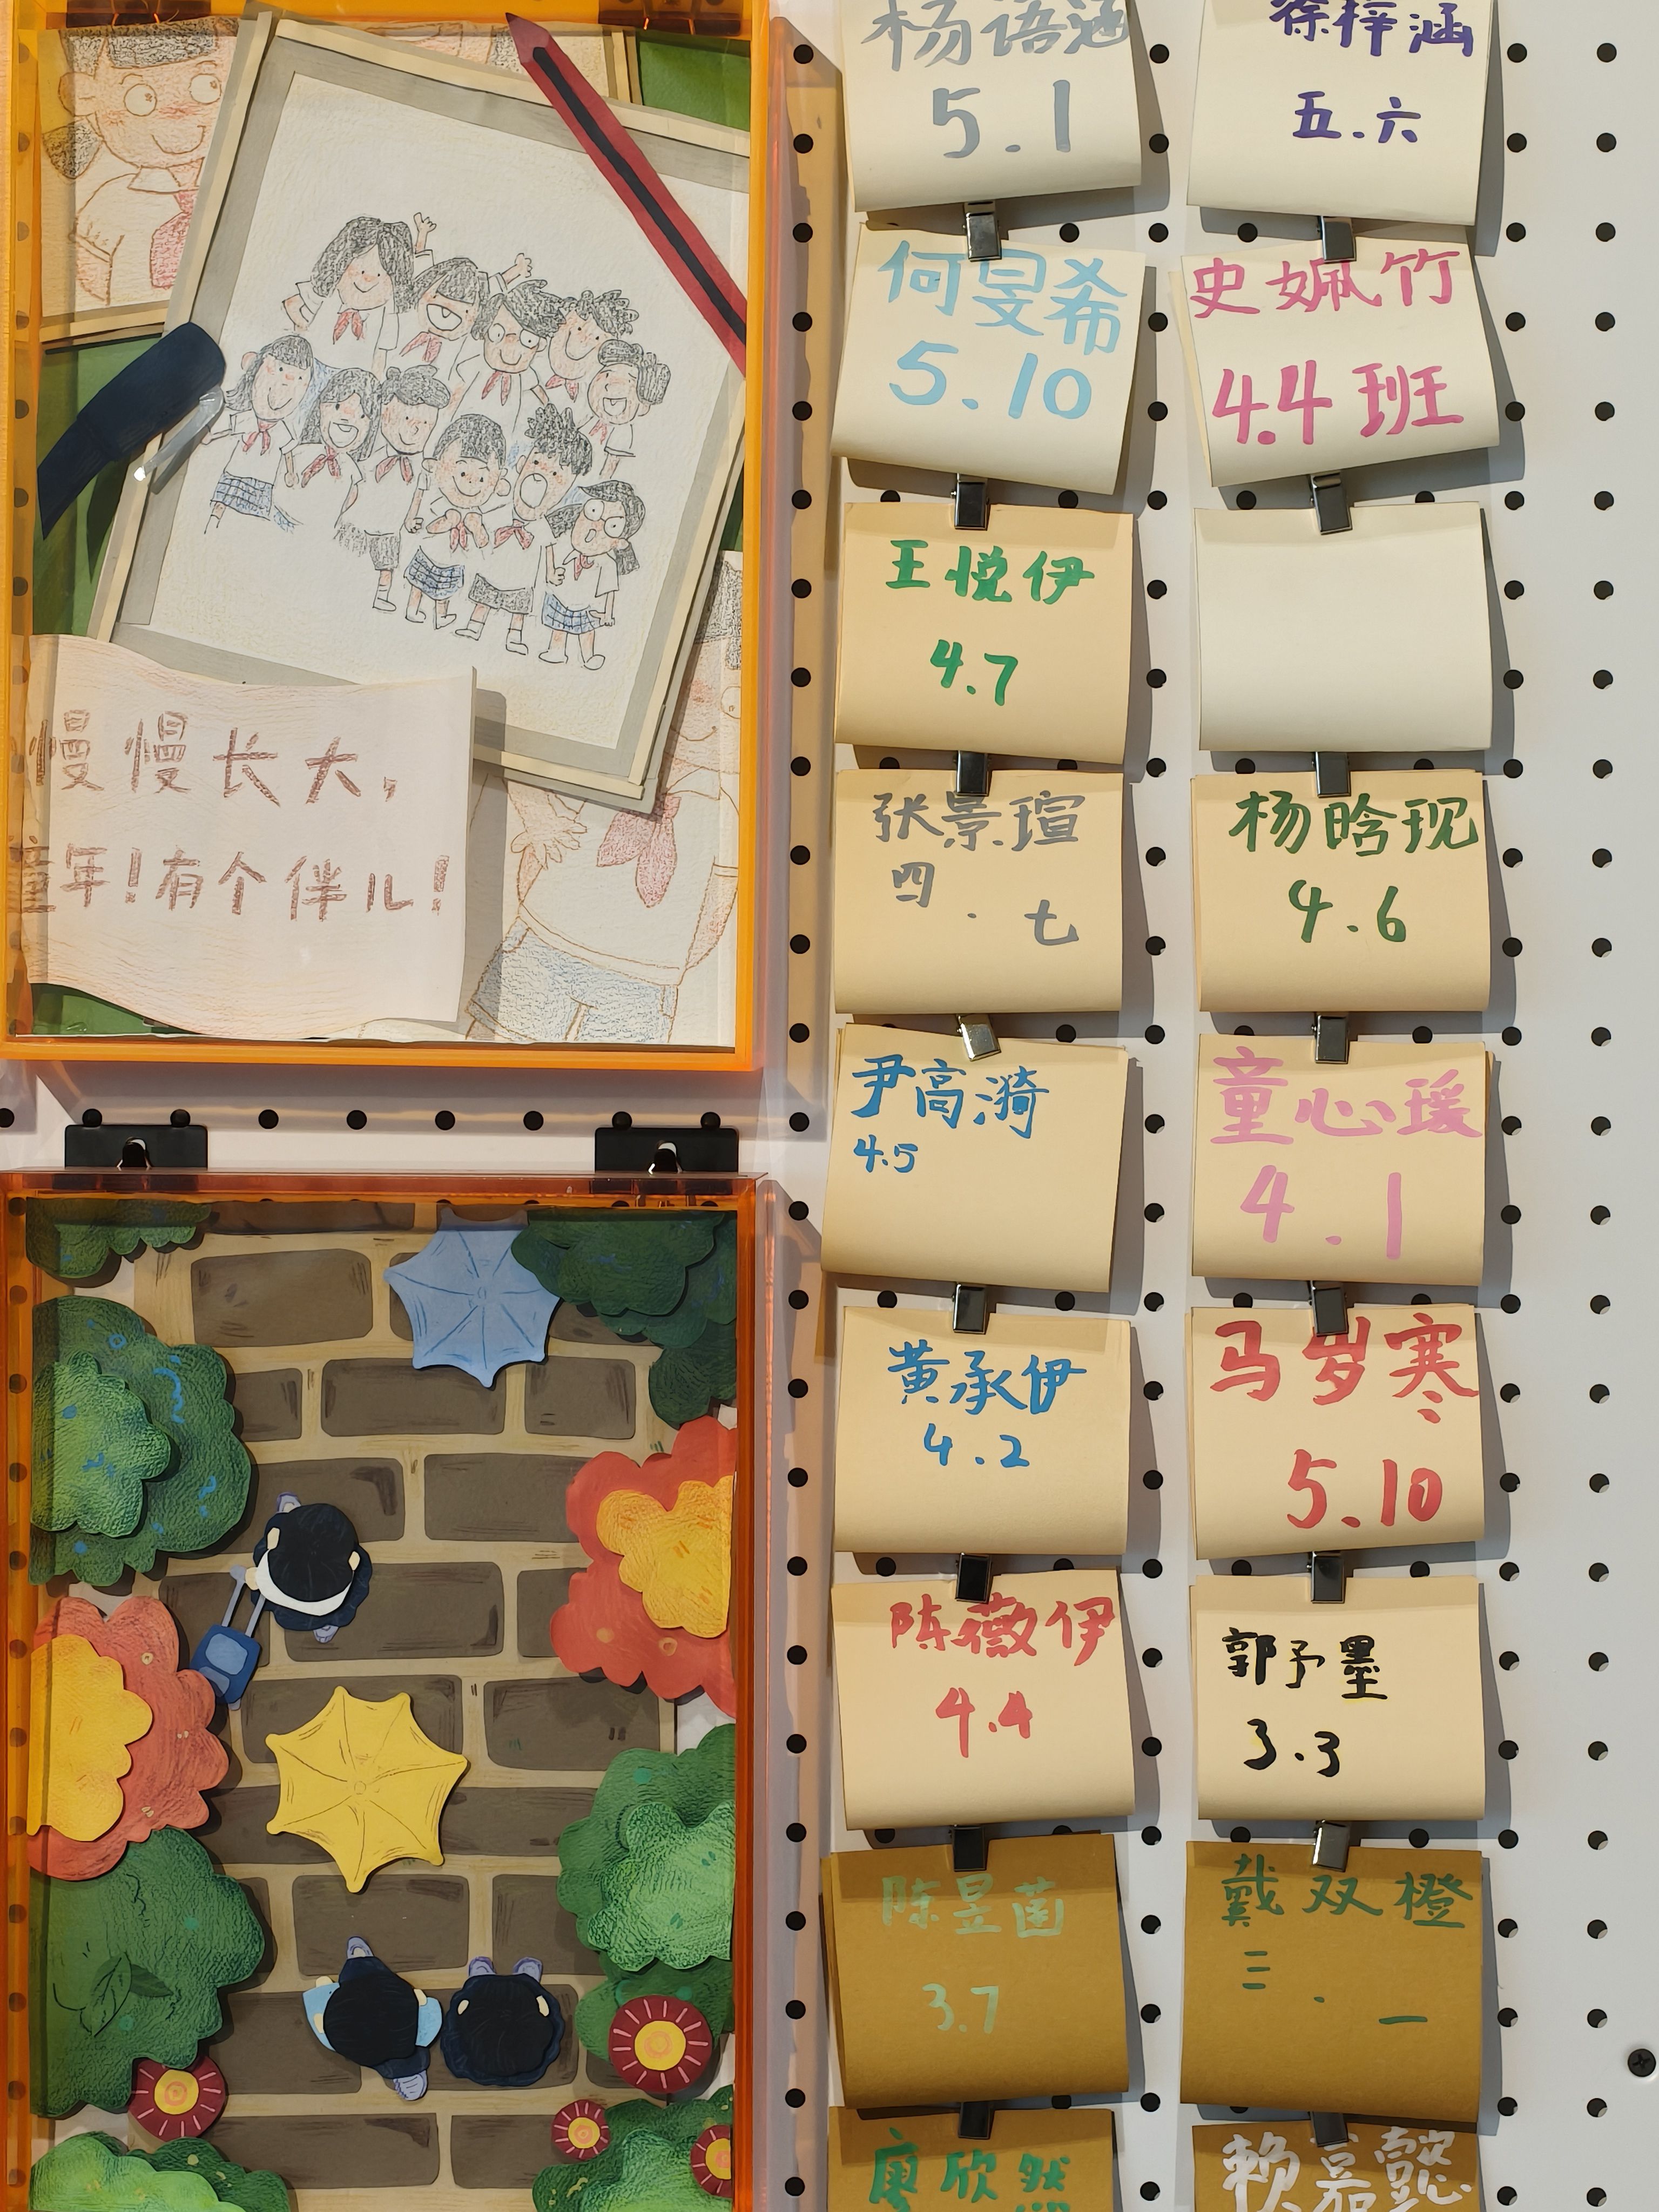 慢慢长大,
童年!有个伴儿!
杨语涵
5.1
何旻希
5.10
王悦伊
4.7
张景瑄
四.七
尹高漪
4.5
黄承伊
4.2
陈薇伊
4.4
陈昱菡
3.7
廖欣然
徐梓涵
五.六
史姵竹
4.4班
杨晗现
4.6
童心瑗
4.1
马岁寒
5.10
郭予墨
3.3
戴双橙
三.一
赖嘉懿